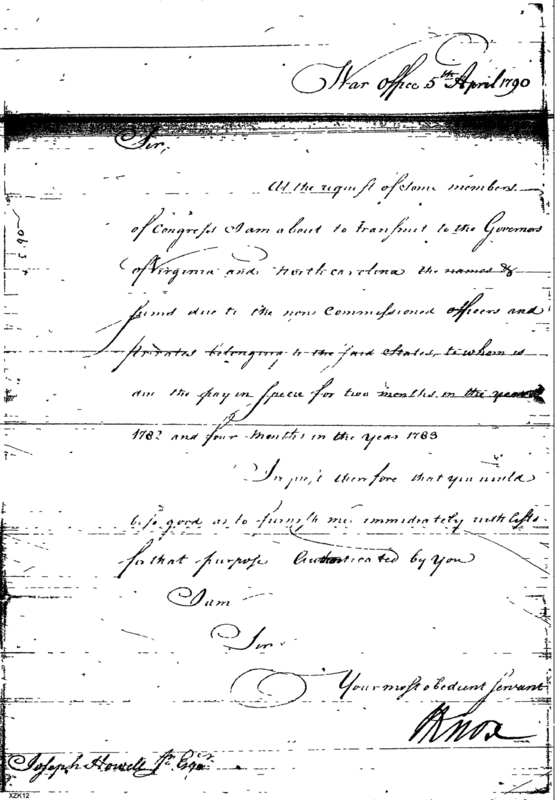 War office 5th April 1790
Sir,
At the request of some members
of Congress I am about to transmit to the Governors
of Virginia and North Carolina the names &
sums due to the non Commissioned officers and
privates belonging to the said States, to whom is
due the pay in specie for two months in the year
1782 and four months in the year 1783
I request therefore that you would
be so good as to furnish me immediately with lists
for that purpose Authenticated by you
I am
Sir
Your most obedient servant
HKnox
Joseph Howell Jr. Esqr.
XZK12